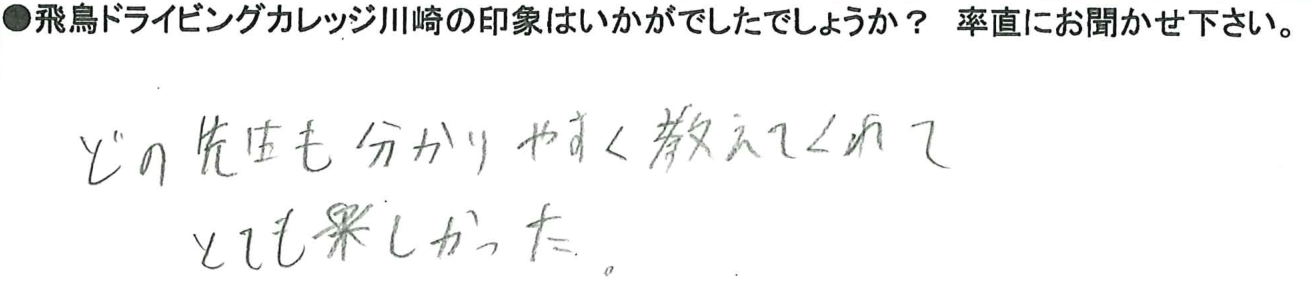 ●飛鳥ドライビングカレッジ川崎の印象はいかがでしたでしょうか？ 率直にお聞かせ下さい。
どの先生も分かりやすく教えてくれて
とても楽しかった。